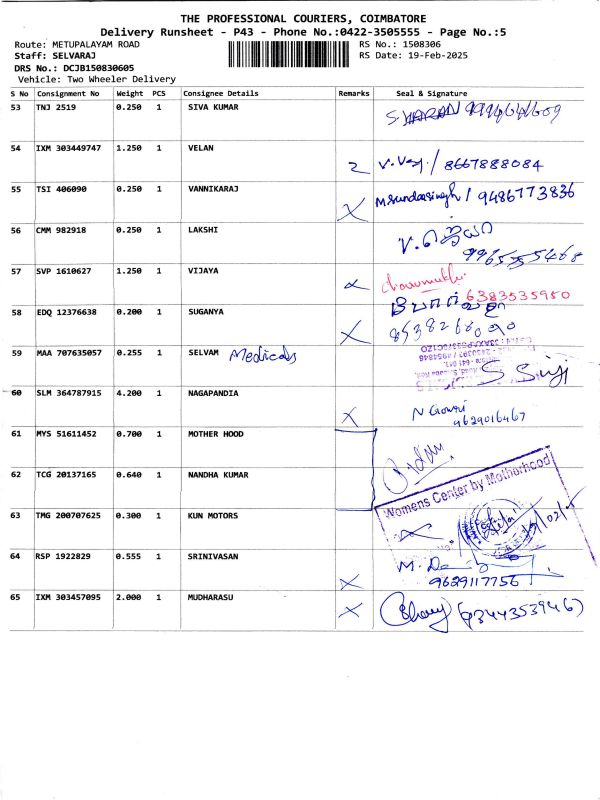 THE PROFESSIONAL COURIERS, COIMBATORE
Delivery Runsheet - P43 - Phone No.:0422-3505555 - Page No.:5
Route: METUPALAYAM ROAD RS No.: 1508306
Staff: SELVARAJ RS Date: 19-Feb-2025
DRS No.: DCJB150830605
Vehicle: Two Wheeler Delivery
S No Consignment No Weight PCS Consignee Details Remarks Seal & Signature
53 TNJ 2519 0.250 1 SIVA KUMAR
54 IXM 303449747 1.250 1 VELAN 8667888084
55 TSI 406090 0.250 1 VANNIKARAJ 9486773836
56 CMM 982918 0.250 1 LAKSHI
57 SVP 1610627 1.250 1 VIJAYA
6383535950
58 EDQ 12376638 0.200 1 SUGANYA
59 MAA 707635057 0.255 1 SELVAM Medicals
60 SLM 364787915 4.200 1 NAGAPANDIA
9629016467
61 MYS 51611452 0.700 1 MOTHER HOOD
62 TCG 20137165 0.640 1 NANDHA KUMAR
Womens Center by Motherhood
63 TMG 200707625 0.300 1 KUN MOTORS
64 RSP 1922829 0.555 1 SRINIVASAN
9629117756
65 IXM 303457095 2.000 1 MUDHARASU (9344353946)